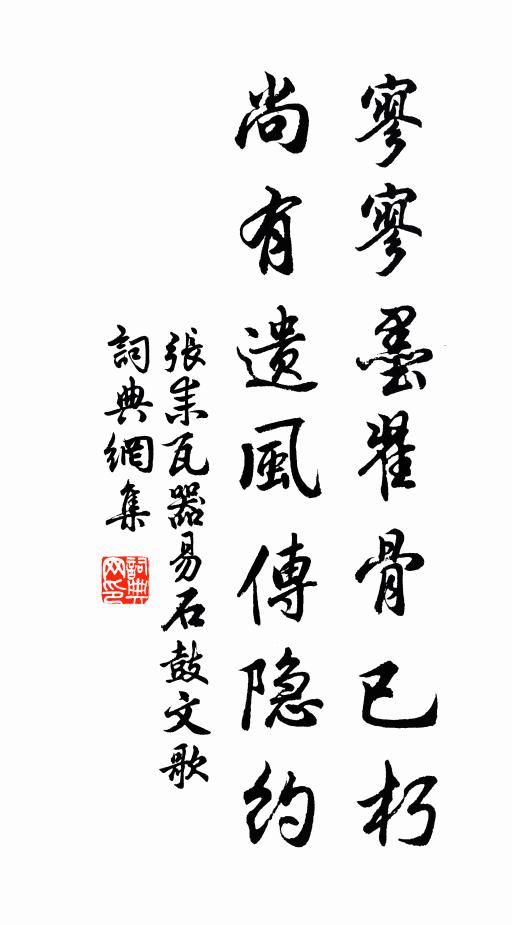 寥寥墨翟骨已朽
尚有遗風傳隐約
張耒瓦器易石鼓文歌
詞典網集
詞典网印